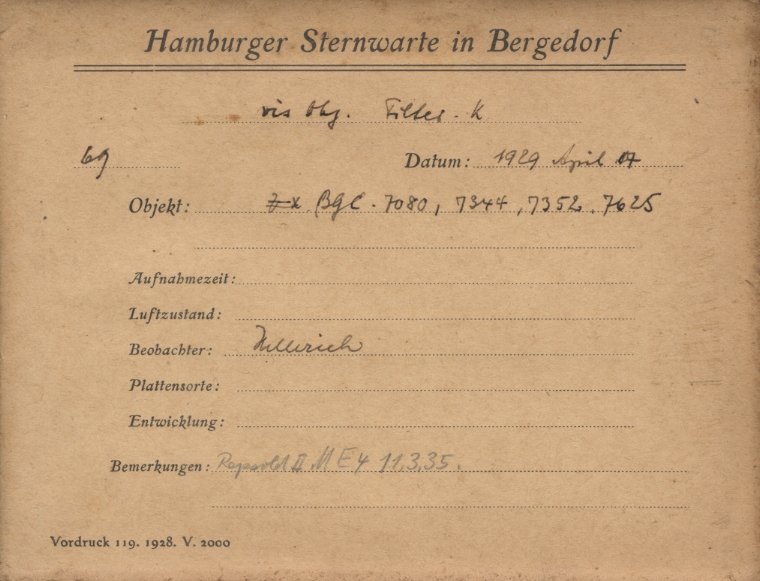 Hamburger Sternwarte in Bergedorf
vis Obj. Filter - K
69
Datum: 1929 April 17
Objekt: x BGC. 7080, 7344, 7352, 7625
Aufnahmezeit:
Luftzustand:
Beobachter: Hellerich
Plattensorte:
Entwicklung:
Bemerkungen: Repsold II. M E4 11.3.35.
Vordruck 119. 1928. V. 2000